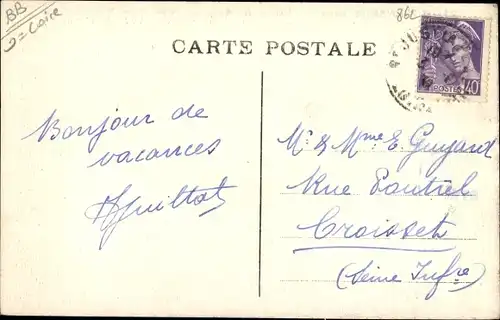 BB
= Loire
86L
CARTE POSTALE
POSTES
40
Bonjour de
vacances
Guillot
Mr & Mme E. Guyard
Rue Poutrel
Croisset
(Seine Infre)